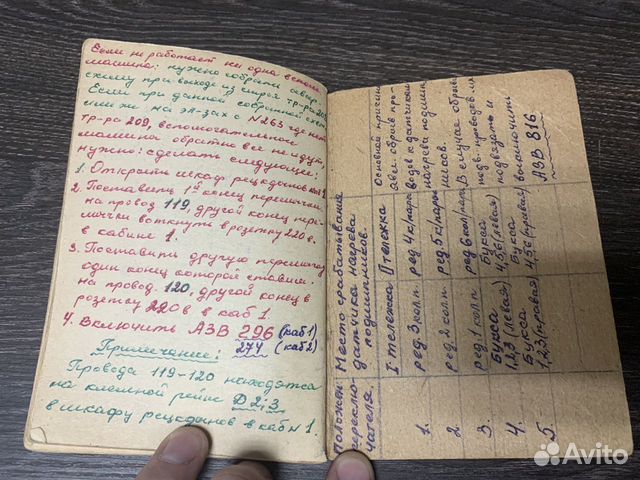 Если не работает ни одна вспом.
машина: нужно собрать авар.
схему при выходе из строя тр-ра 209.
Если при данной собранной схе
ме же на эл-зах с N263 где нет
тр-ра 209, вспомогательной
машины обратно все не идут,
нужно: сделать следующее:
1. Открыть шкаф рецкодчиков каб 1
2. Поставить 1й конец перемычки
на провод 119, другой конец пере-
мычки воткнуть в розетку 220 в.
в кабине 1.
3. Поставить другую перемычку
один конец которой ставим.
на провод. 120, другой конец в
розетку 220 в в каб 1
4. Включить АЗВ 296 (каб1)
274 (каб2)
Примечание:
Провода 119-120 находятся
на клемной рейке Д 2;3
в шкафу рецкодчиков в каб N 1.
Положен.
переклю-
чателя.
Место срабатывания
датчика нагрева
подшипников.
Основной причина
явл. обрыв про-
водов к датчикам
нагрева подшип
ников.
I тележка
II тележка
1.
ред. 3 колп.
ред 4 к/пары
2
ред. 2 колп.
ред 5 к/пары
3.
ред 1 колп.
ред 6 кол/пары
В случае обрыв
подв. проводов их
подвязать и
выключить
АЗВ 816
4.
Букса
1,2,3 (левая)
Букса
4,5,6 (левая)
5.
Букса
1,2,3 (правая)
Букса
4,5,6 (правая)
Avito